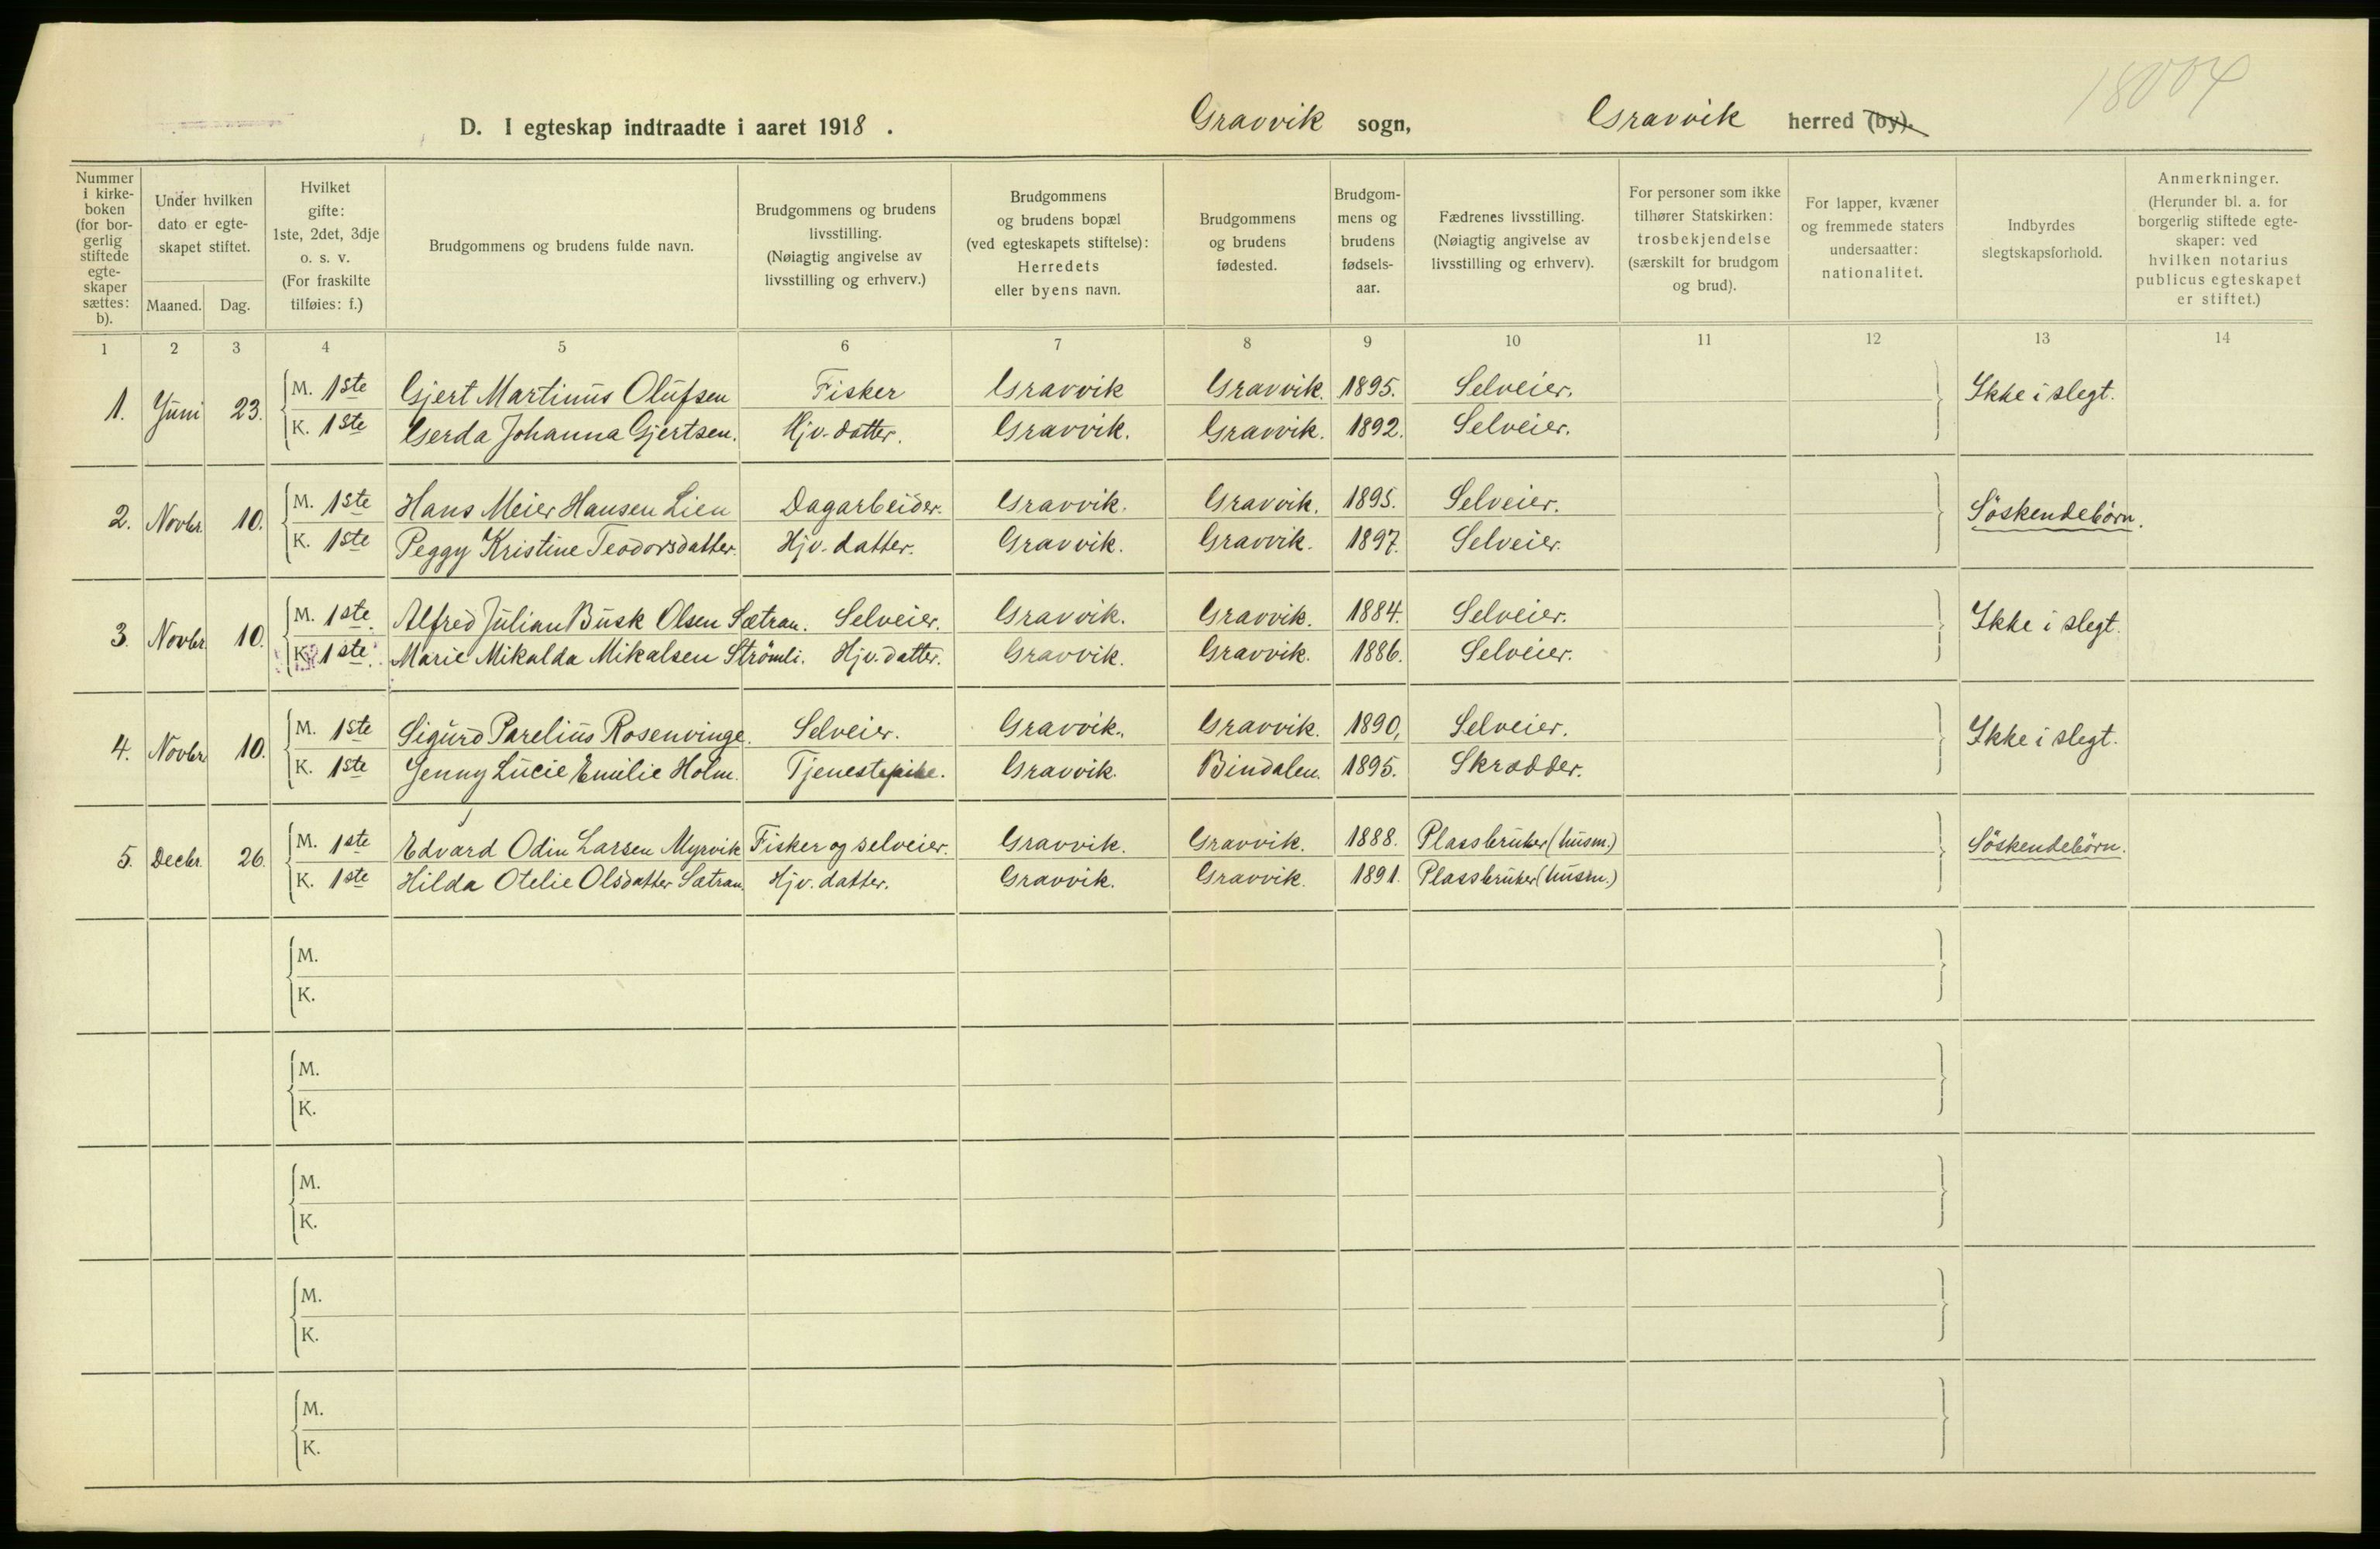 18004
D. I egteskap indtraadte i aaret 1918. Gravvik sogn, Gravvik herred (by).
Nummer i kirkeboken (for borgerlig stiftede egteskaper sættes: b).
Under hvilken dato er egteskapet stiftet.
Maaned. Dag.
Hvilket gifte: 1ste, 2det, 3dje o. s. v. (For fraskilte tilføies: f.)
Brudgommens og brudens fulde navn.
Brudgommens og brudens livsstilling. (Nøiagtig angivelse av livsstilling og erhverv.)
Brudgommens og brudens bopæl (ved egteskapets stiftelse): Herredets eller byens navn.
Brudgommens og brudens fødested.
Brudgommens og brudens fødselsaar.
Fædrenes livsstilling. (Nøiagtig angivelse av livsstilling og erhverv).
For personer som ikke tilhører Statskirken: trosbekjendelse (særskilt for brudgom og brud).
For lapper, kvæner og fremmede staters undersaatter: nationalitet.
Indbyrdes slegtskapsforhold.
Anmerkninger. (Herunder bl. a. for borgerlig stiftede egteskaper: ved hvilken notarius publicus egteskapet er stiftet.)
1 2 3 4 5 6 7 8 9 10 11 12 13 14
1. Juni 23. M. 1ste Gjert Martinus Olufsen Fisker Gravvik Gravvik. 1895. Selveier. Ikke i slegt.
K. 1ste Gerda Johanna Gjertsen. Hjv. datter. Gravvik. Gravvik. 1892. Selveier.
2. Novbr. 10. M. 1ste Hans Meier Hansen Lien Dagarbeider. Gravvik. Gravvik. 1895. Selveier. Söskendebörn.
K. 1ste Peggy Kristine Teodorsdatter. Hjv. datter. Gravvik. Gravvik. 1897. Selveier.
3. Novbr. 10. M. 1ste. Alfred Julian Busk Olsen Sætran. Selveier. Gravvik. Gravvik. 1884. Selveier. Ikke i slegt.
K. 1ste. Marie Mikalda Mikalsen Strömli. Hjv. datter. Gravvik. Gravvik. 1886. Selveier.
4. Novbr. 10. M. 1ste Sigurd Parelius Rosenvinge. Selveier. Gravvik. Gravvik. 1890, Selveier. Ikke i slegt.
K. 1ste Jenny Lucie Emilie Holm. Tjenestepike. Gravvik. Bindalen. 1895. Skrædder.
5. Decbr. 26. M. 1ste Edvard Odin Larsen Myrvik Fisker og selveier. Gravvik. Gravvik. 1888. Plassbruker (husm.) Söskendebörn.
K. 1ste Hilda Otelie Olsdatter Sætran. Hjv. datter. Gravvik. Gravvik. 1891. Plassbruker (husm.)
M.
K.
M.
K.
M.
K.
M.
K.
M.
K.